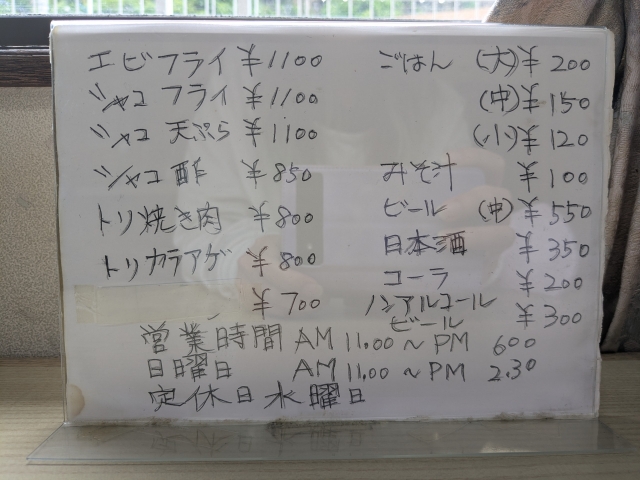 エビフライ ¥1100
シャコ フライ ¥1100
シャコ 天ぷら ¥1100
シャコ 酢 ¥850
トリ焼き肉 ¥800
トリカラアゲ ¥800
¥700
ごはん (大)¥200
(中)¥150
(小)¥120
みそ汁 ¥100
ビール (中)¥550
日本酒 ¥350
コーラ ¥200
ノンアルコール
ビール ¥300
営業時間 AM 11.00 ~ PM 6.00
日曜日 AM 11.00 ~ PM 2.30
定休日 水曜日